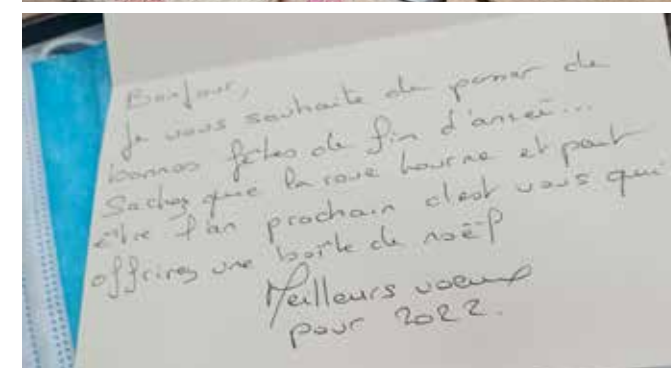 Bonjour,
Je vous souhaite de passer de
bonnes fêtes de fin d'anneé...
Sachez que la roue tourne et peut
être l'an prochain c'est vous qui
offrirez une boîte de noël
Meilleurs voeux
pour 2022.